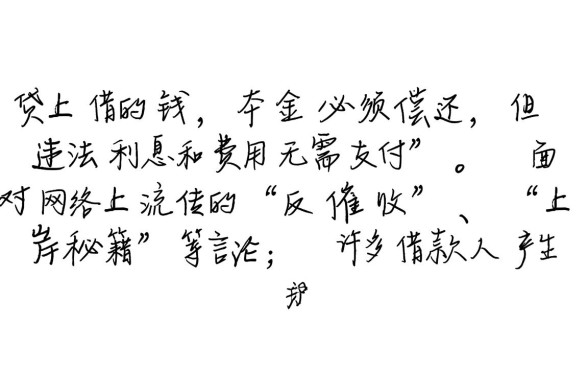 贷上借的钱，本金必须偿还，但
违法利息和费用无需支付”。 面
对网络上流传的“反催收”、“上
岸秘籍”等言论； 许多借款人产生